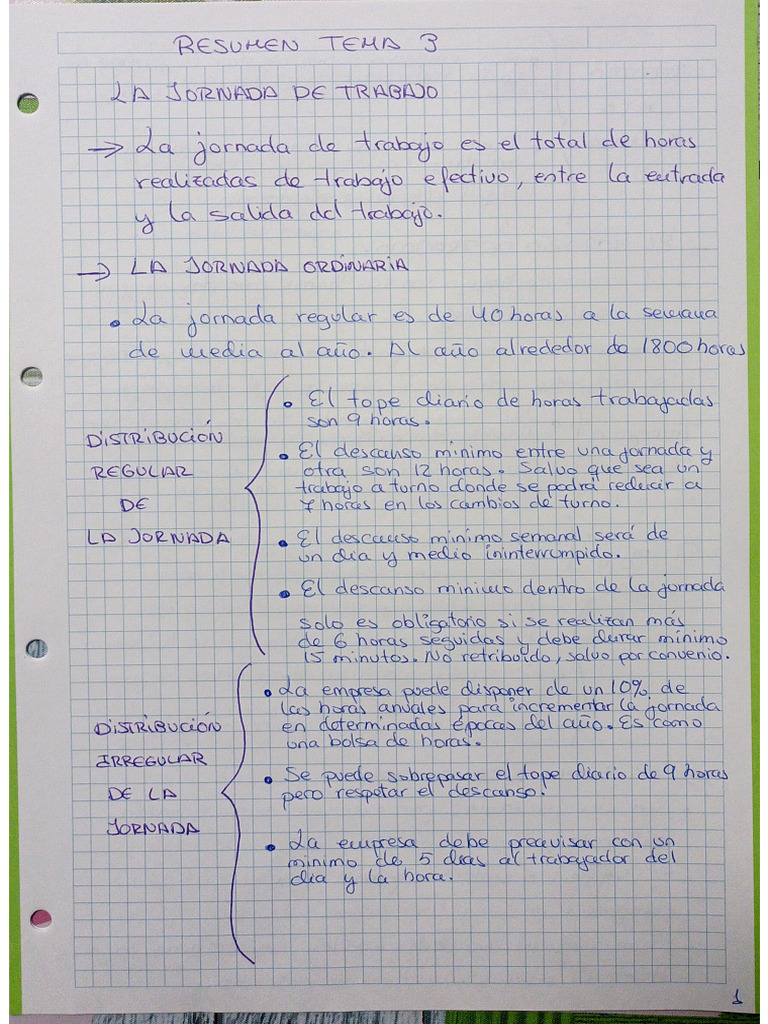 RESUMEN TEMA 3
LA JORNADA DE TRABAJO
→ La jornada de trabajo es el total de horas
realizadas de trabajo efectivo, entre la entrada
y la salida del trabajo.
→ LA JORNADA ORDINARIA
• La jornada regular es de 40 horas a la semana
de media al año. Al año alrededor de 1800 horas
DISTRIBUCIÓN
REGULAR
DE
LA JORNADA
• El tope diario de horas trabajadas
son 9 horas.
• El descanso mínimo entre una jornada y
otra son 12 horas. Salvo que sea un
trabajo a turno donde se podrá reducir a
7 horas en los cambios de turno.
• El descanso mínimo semanal será de
un día y medio ininterrumpido.
• El descanso mínimo dentro de la jornada
solo es obligatorio si se realizan más
de 6 horas seguidas y debe durar mínimo
15 minutos. No retribuido, salvo por convenio.
DISTRIBUCIÓN
IRREGULAR
DE LA
JORNADA
• La empresa puede disponer de un 10% de
las horas anuales para incrementar la jornada
en determinadas épocas del año. Es como
una bolsa de horas.
• Se puede sobrepasar el tope diario de 9 horas
pero respetar el descanso.
• La empresa debe preavisar con un
mínimo de 5 días al trabajador del
día y la hora.
1